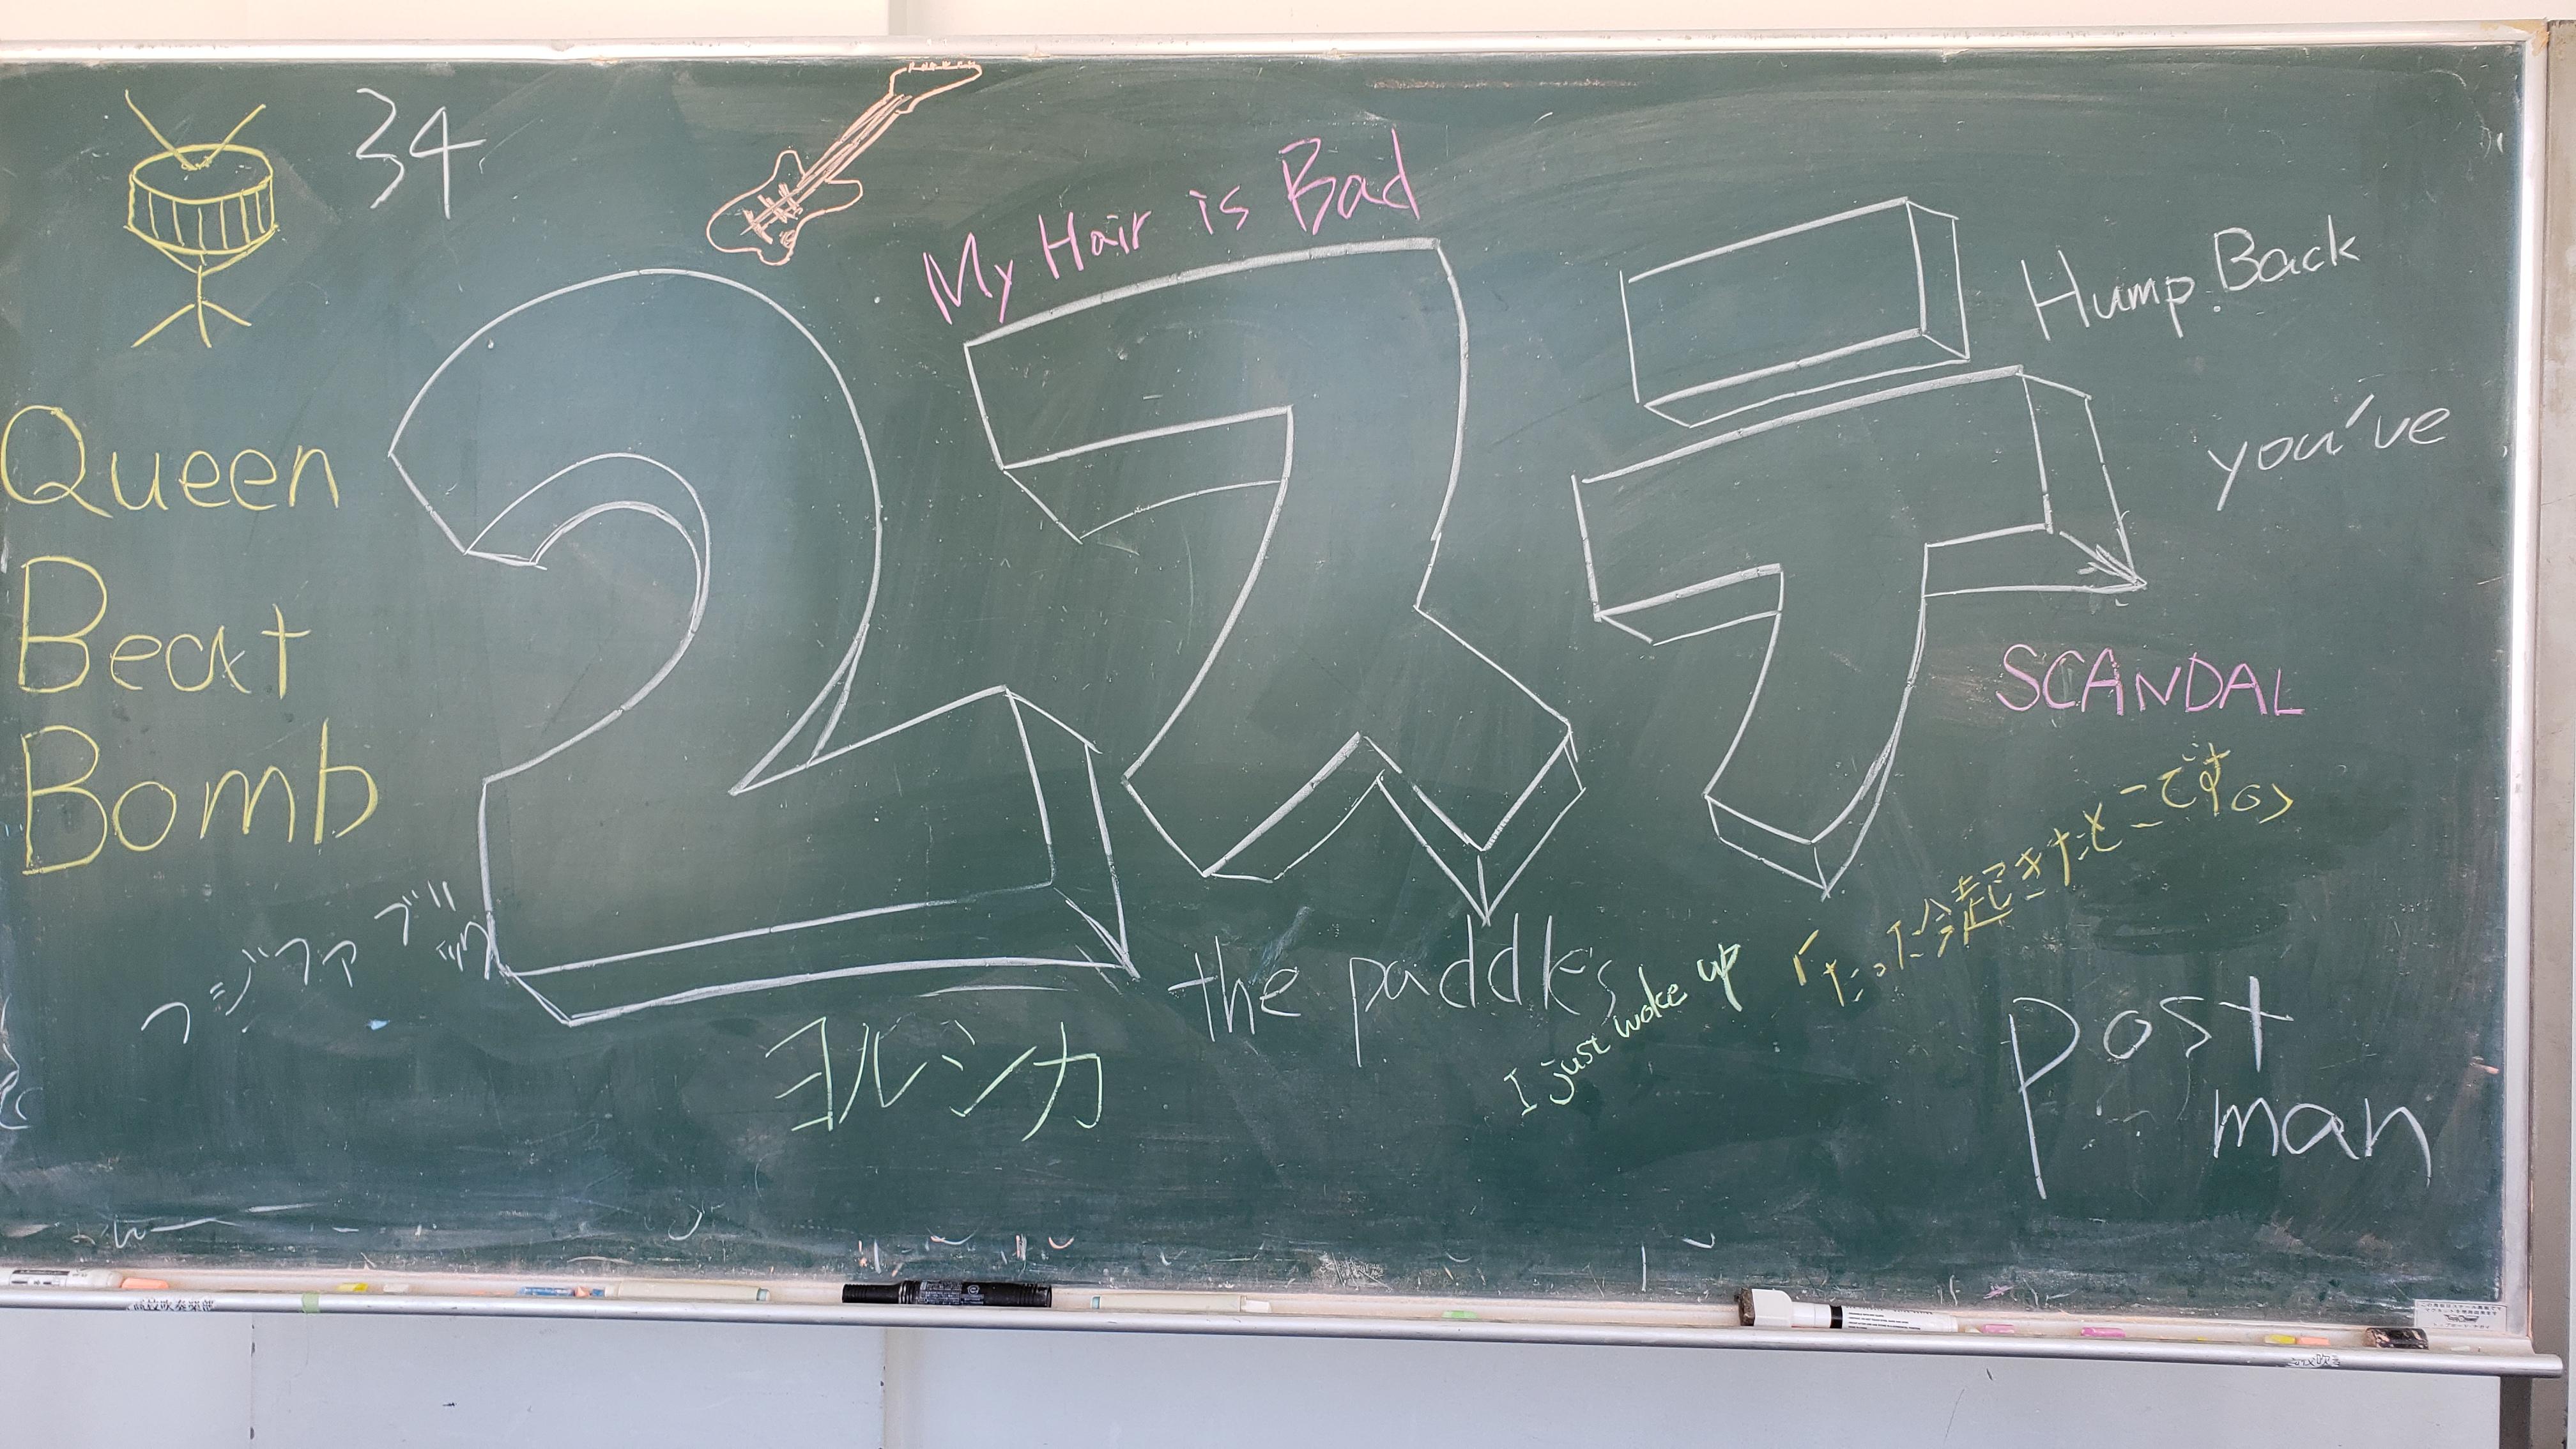 34
My Hair is Bad
Hump Back
Queen
Beat
Bomb
2ステ
you've
SCANDAL
フジファブリック
ヨルシカ
the paddles
I just woke up
「たった今起きたとこです。」
Post
man